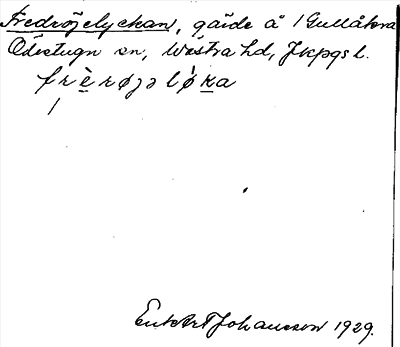 Fredröjelyckan, gärde å 1 Gullåkra
Ödestugn sn, Västra hd, Jkpgs l.
frèrøjəløka
Enl. Johansson 1929.